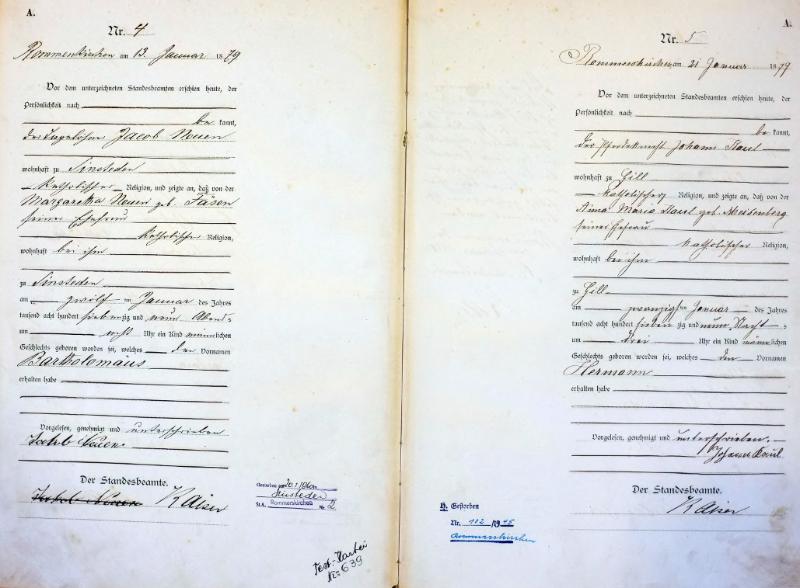 A.
Nr. 4
Rommerskirchen am 13. Januar 1879
Vor dem unterzeichneten Standesbeamten erschien heute, der
Persönlichkeit nach
be kannt,
der Tagelöhner Jacob Neuen
wohnhaft zu Sinsteden
katholischer Religion, und zeigte an, daß von der
Margaretha Neuen geb. Fäsen
seiner Ehefrau
katholischer Religion,
wohnhaft bei ihm
zu Sinsteden
am zwölf ten Januar des Jahres
tausend acht hundert siebenzig und neun Abends
um acht Uhr ein Kind männlichen
Geschlechts geboren worden sei, welches den Vornamen
Bartholomäus
erhalten habe
Vorgelesen, genehmigt und unterschrieben
Jakob Neuen
Der Standesbeamte.
Jakob Neuen Kaiser
Gestorben
Sinsteden
StA. Rommerskirchen № 2
Test-Kartei
№ 639
A.
Nr. 5
Rommerskirchen am 21 Januar 1879
Vor dem unterzeichneten Standesbeamten erschien heute, der
Persönlichkeit nach
be kannt,
der Pferdeknecht Johann
wohnhaft zu Gill
katholischer Religion, und zeigte an, daß von der
Anna Maria geb.
seiner Ehefrau
katholischer Religion,
wohnhaft bei ihm
zu Gill
am zwanzigsten Januar des Jahres
tausend acht hundert sieben zig und neun Nacht
um drei Uhr ein Kind männlichen
Geschlechts geboren worden sei, welches den Vornamen
Hermann
erhalten habe
Vorgelesen, genehmigt und unterschrieben.
Johann
Der Standesbeamte.
Kaiser
H. Gestorben
Nr. 112 /19
Rommerskirchen